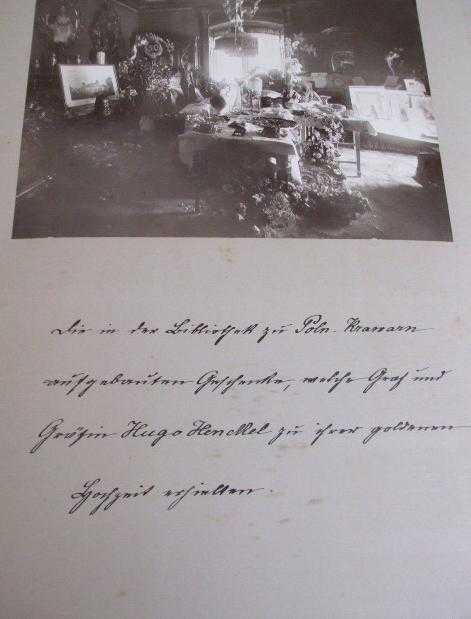 Die in der Bibliothek zu Poln. Krawarn
aufgebauten Geschenke, welche Graf und
Gräfin Hugo Henckel zu ihrer goldenen
Hochzeit erhielten.